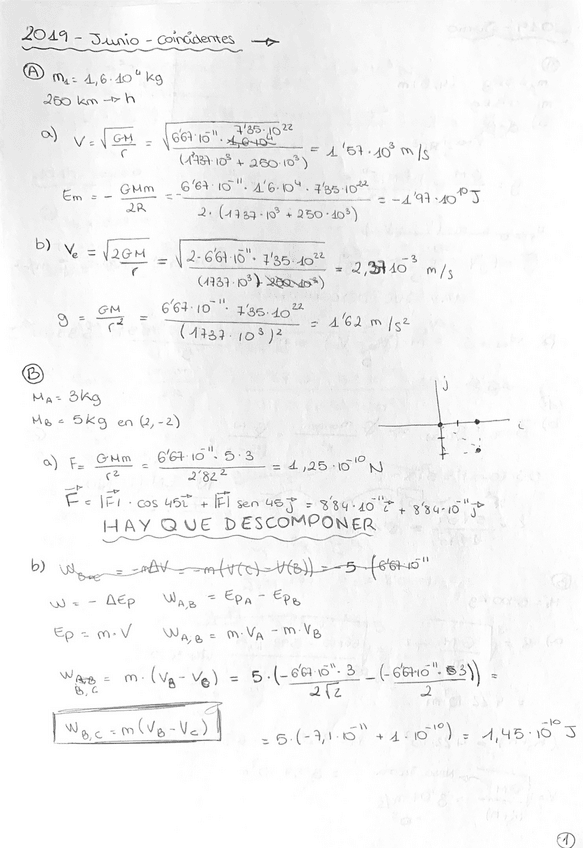 2019 - Junio - coincidentes →
A m₁ = 1,6·10⁴ kg
250 km → h
a) V = √(GM/r) = √(6'67·10⁻¹¹ · 7'35·10²² / (1'737·10³ + 250·10³)) = 1'57·10³ m/s
Em = - GMm/2R = -6'67·10⁻¹¹ · 1'6·10⁴ · 7'35·10²² / 2·(1737·10³ + 250·10³) = -1'97·10¹⁰ J
b) Ve = √(2GM/r) = √(2·6'67·10⁻¹¹ · 7'35·10²² / (1737·10³)) = 2,37 10⁻³ m/s
g = GM/r² = 6'67·10⁻¹¹ · 7'35·10²² / (1737·10³)² = 1'62 m/s²
B
MA = 3kg
MB = 5kg en (2,-2)
j
i
a) F = GMm/r² = 6'67·10⁻¹¹ · 5·3 / 2'82² = 1,25·10⁻¹⁰ N
F⃗ = |F⃗| · cos 45 i⃗ + |F⃗| sen 45 j⃗ = 8'84·10⁻¹¹ i⃗ + 8'84·10⁻¹¹ j⃗
HAY QUE DESCOMPONER
b) = -mΔV = -m(V(C) - V(B)) = -5 (6'67·10⁻¹¹
W = - ΔEp W A,B = EpA - EpB
Ep = m·V W A,B = m·VA - m·VB
W B,C = m·(VB - VC) = 5·(-6'67·10⁻¹¹·3 / 2√2 - (-6'67·10⁻¹¹·3 / 2)) =
W B,C = m(VB - VC)
= 5·(-7,1·10⁻¹¹ + 1·10⁻¹⁰) = 1,45·10⁻¹⁰ J
1